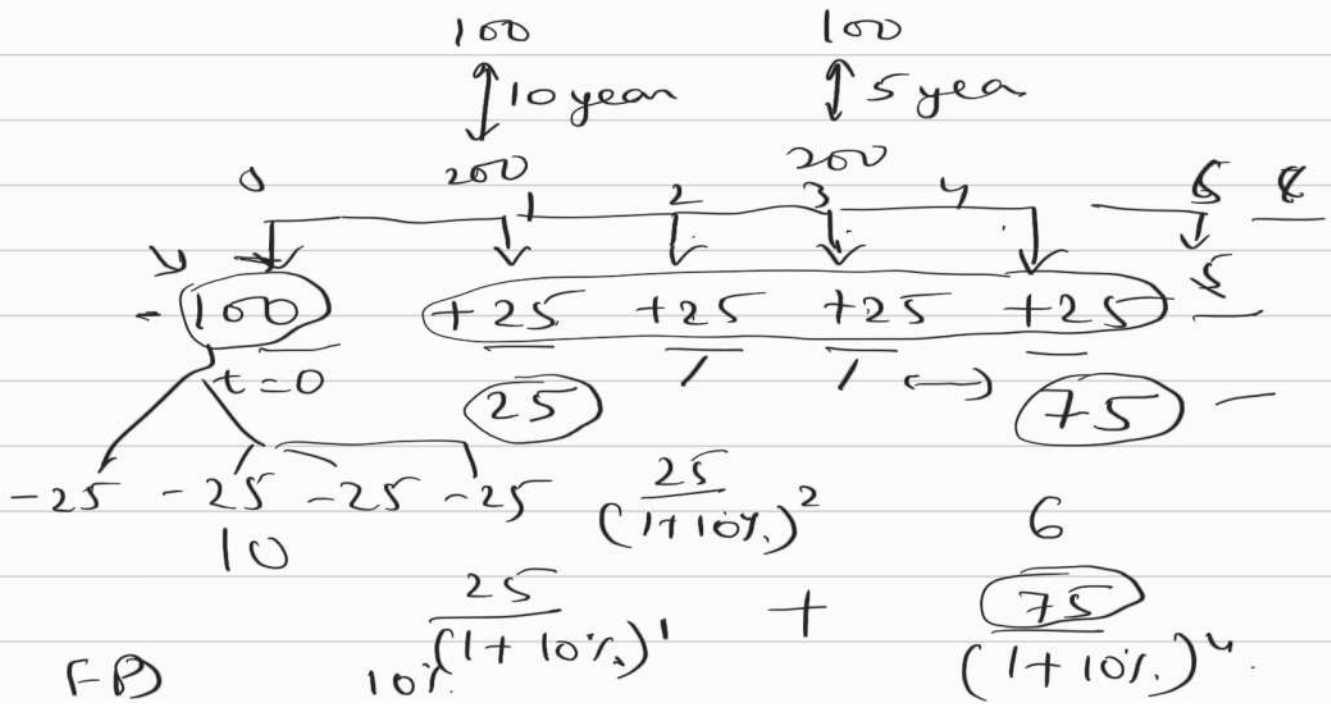 100 100
10 year 5 yea
200 200
0 1 2 3 4 5 8
- 100 +25 +25 +25 +25 5
t=0 25 75
-25 -25 -25 -25 25/(1+10%)^2 6
10
25/(1+10%)^1 + 75/(1+10%)^4
10%